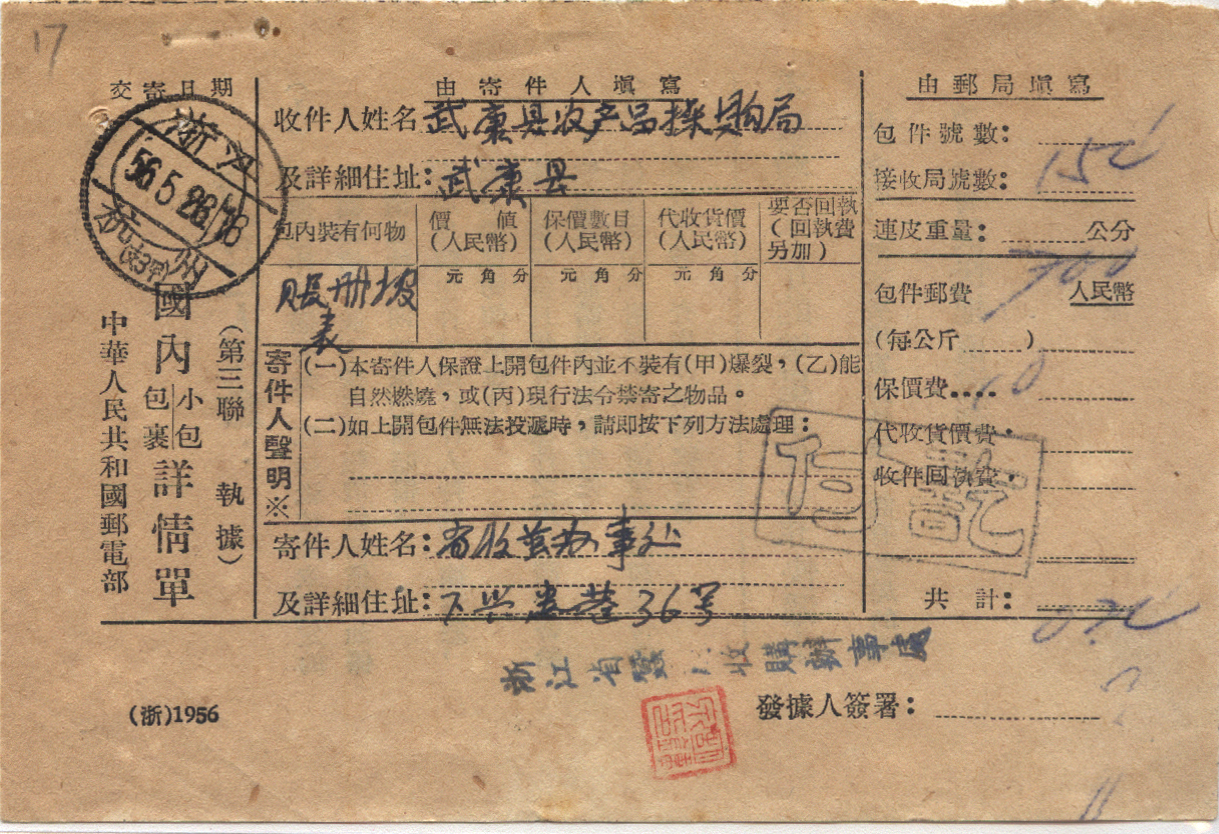 17
交寄日期
浙江
56.5.28.18
杭州
中華人民共和國郵電部
國內小包包裹詳情單
(第三聯 執據)
由寄件人填寫
收件人姓名 武康县农产品採购局
及詳細住址:武康县
包內裝有何物
價值(人民幣)
保價數目(人民幣)
代收貨價(人民幣)
要否回執(回執費另加)
元角分 元角分 元角分
账册报表
寄件人聲明※
(一)本寄件人保證上開包件內並不裝有(甲)爆裂,(乙)能
自然燃燒,或(丙)現行法令禁寄之物品。
(二)如上開包件無法投遞時,請即按下列方法處理:
寄件人姓名:省收茧办事处
及詳細住址:36号
由郵局填寫
包件號數:
接收局號數:
連皮重量: 700 公分
包件郵費 人民幣
(每公斤 )
保價費....
代收貨價費:
收件回執費:
共計:
浙江省 收購辦事處
發據人簽署:
(浙)1956